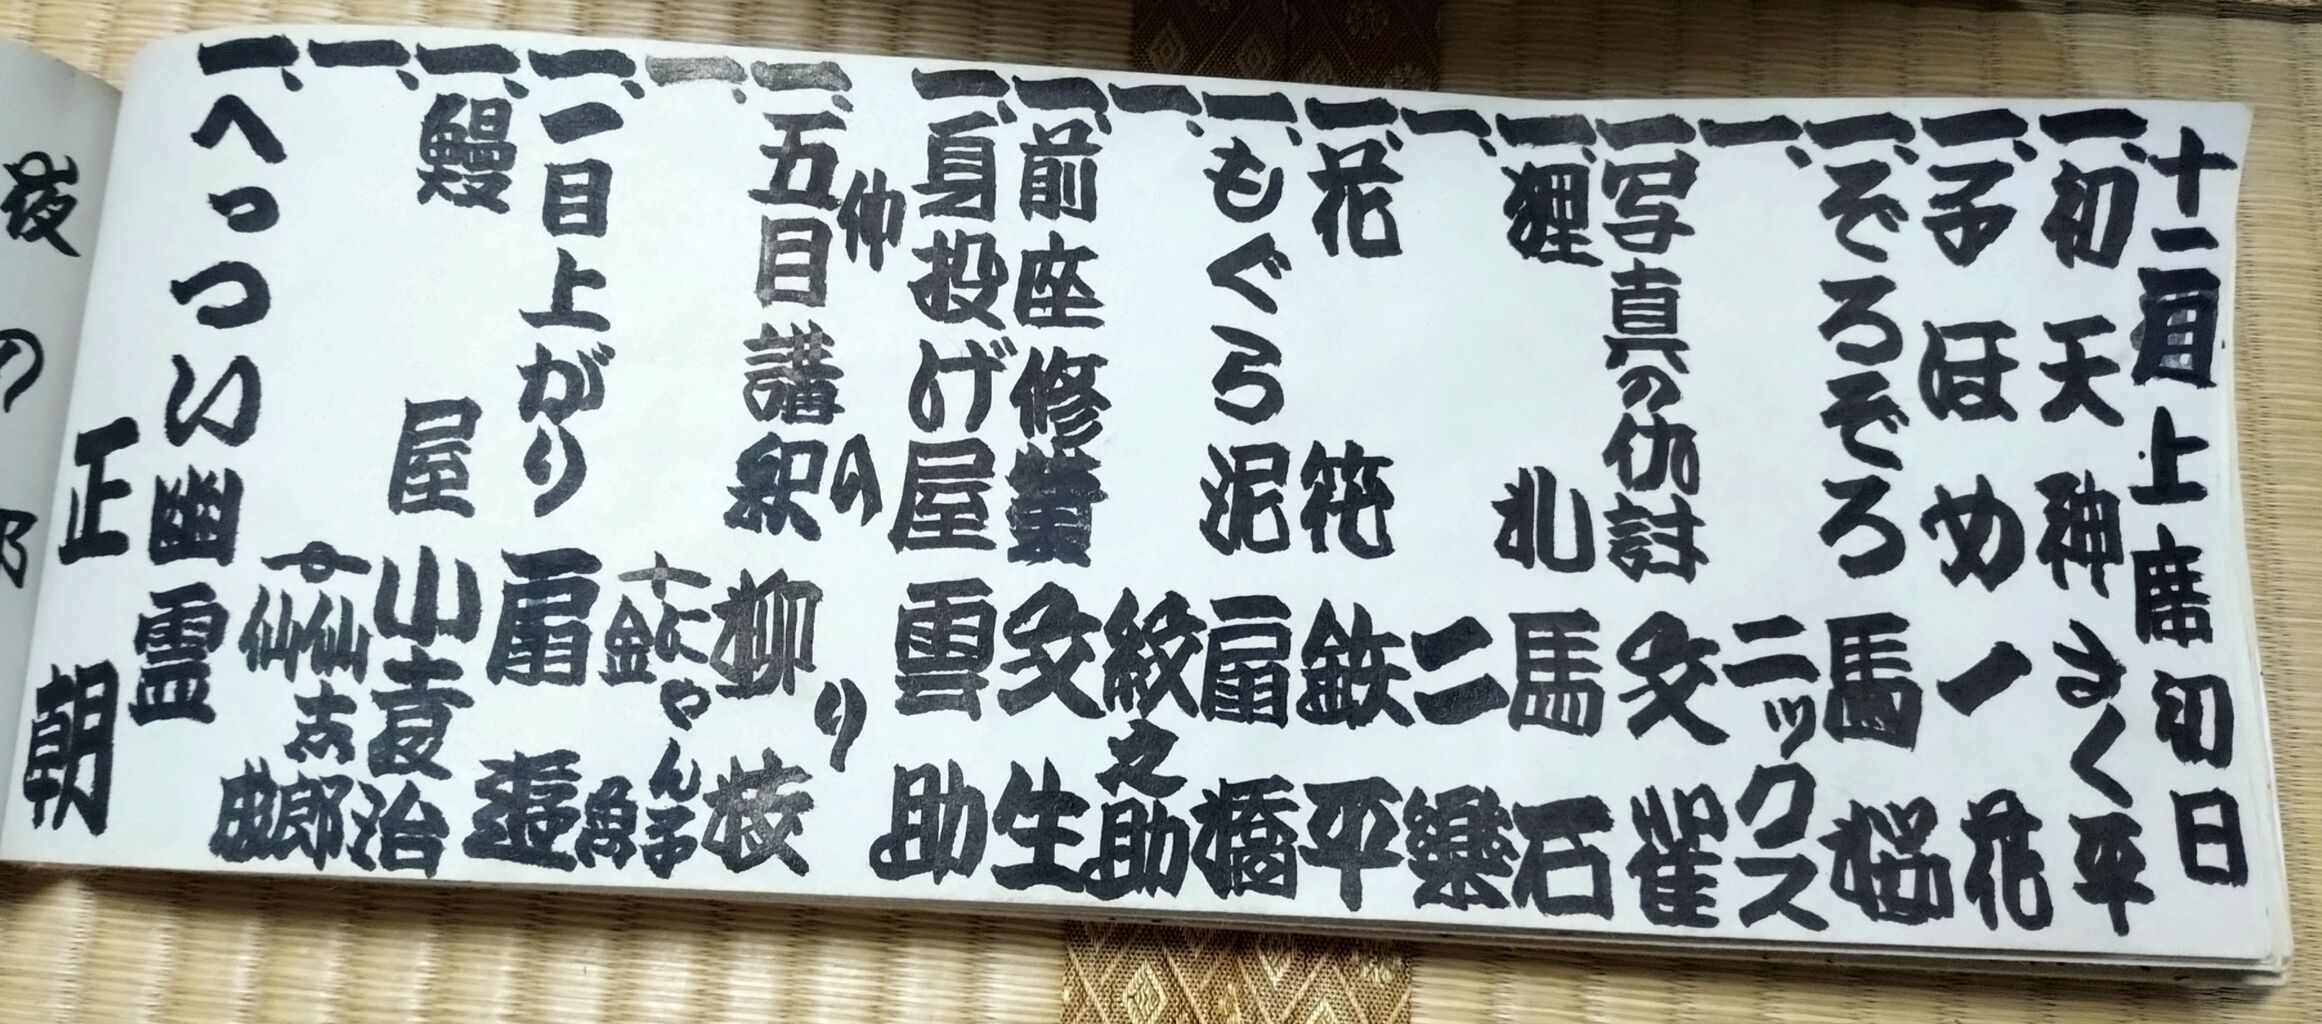 十二月上席初日
一、初天神 さく平
一、子ほめ 一花
一、ぞろぞろ 馬桜
一、ニックス
一、写真の仇討 文雀
一、狸札 馬石
一、二楽
一、花筏 鉄平
一、もぐら泥 扇橋
一、紋之助
一、前座修業 文生
一、身投げ屋 雲助
仲入り
一、五目講釈 柳枝
一、にゃん子 金魚
一、一目上がり 扇遊
一、鰻屋 小袁治
一、仙志郎 仙成
一、へっつい幽霊 正朝
夜の部